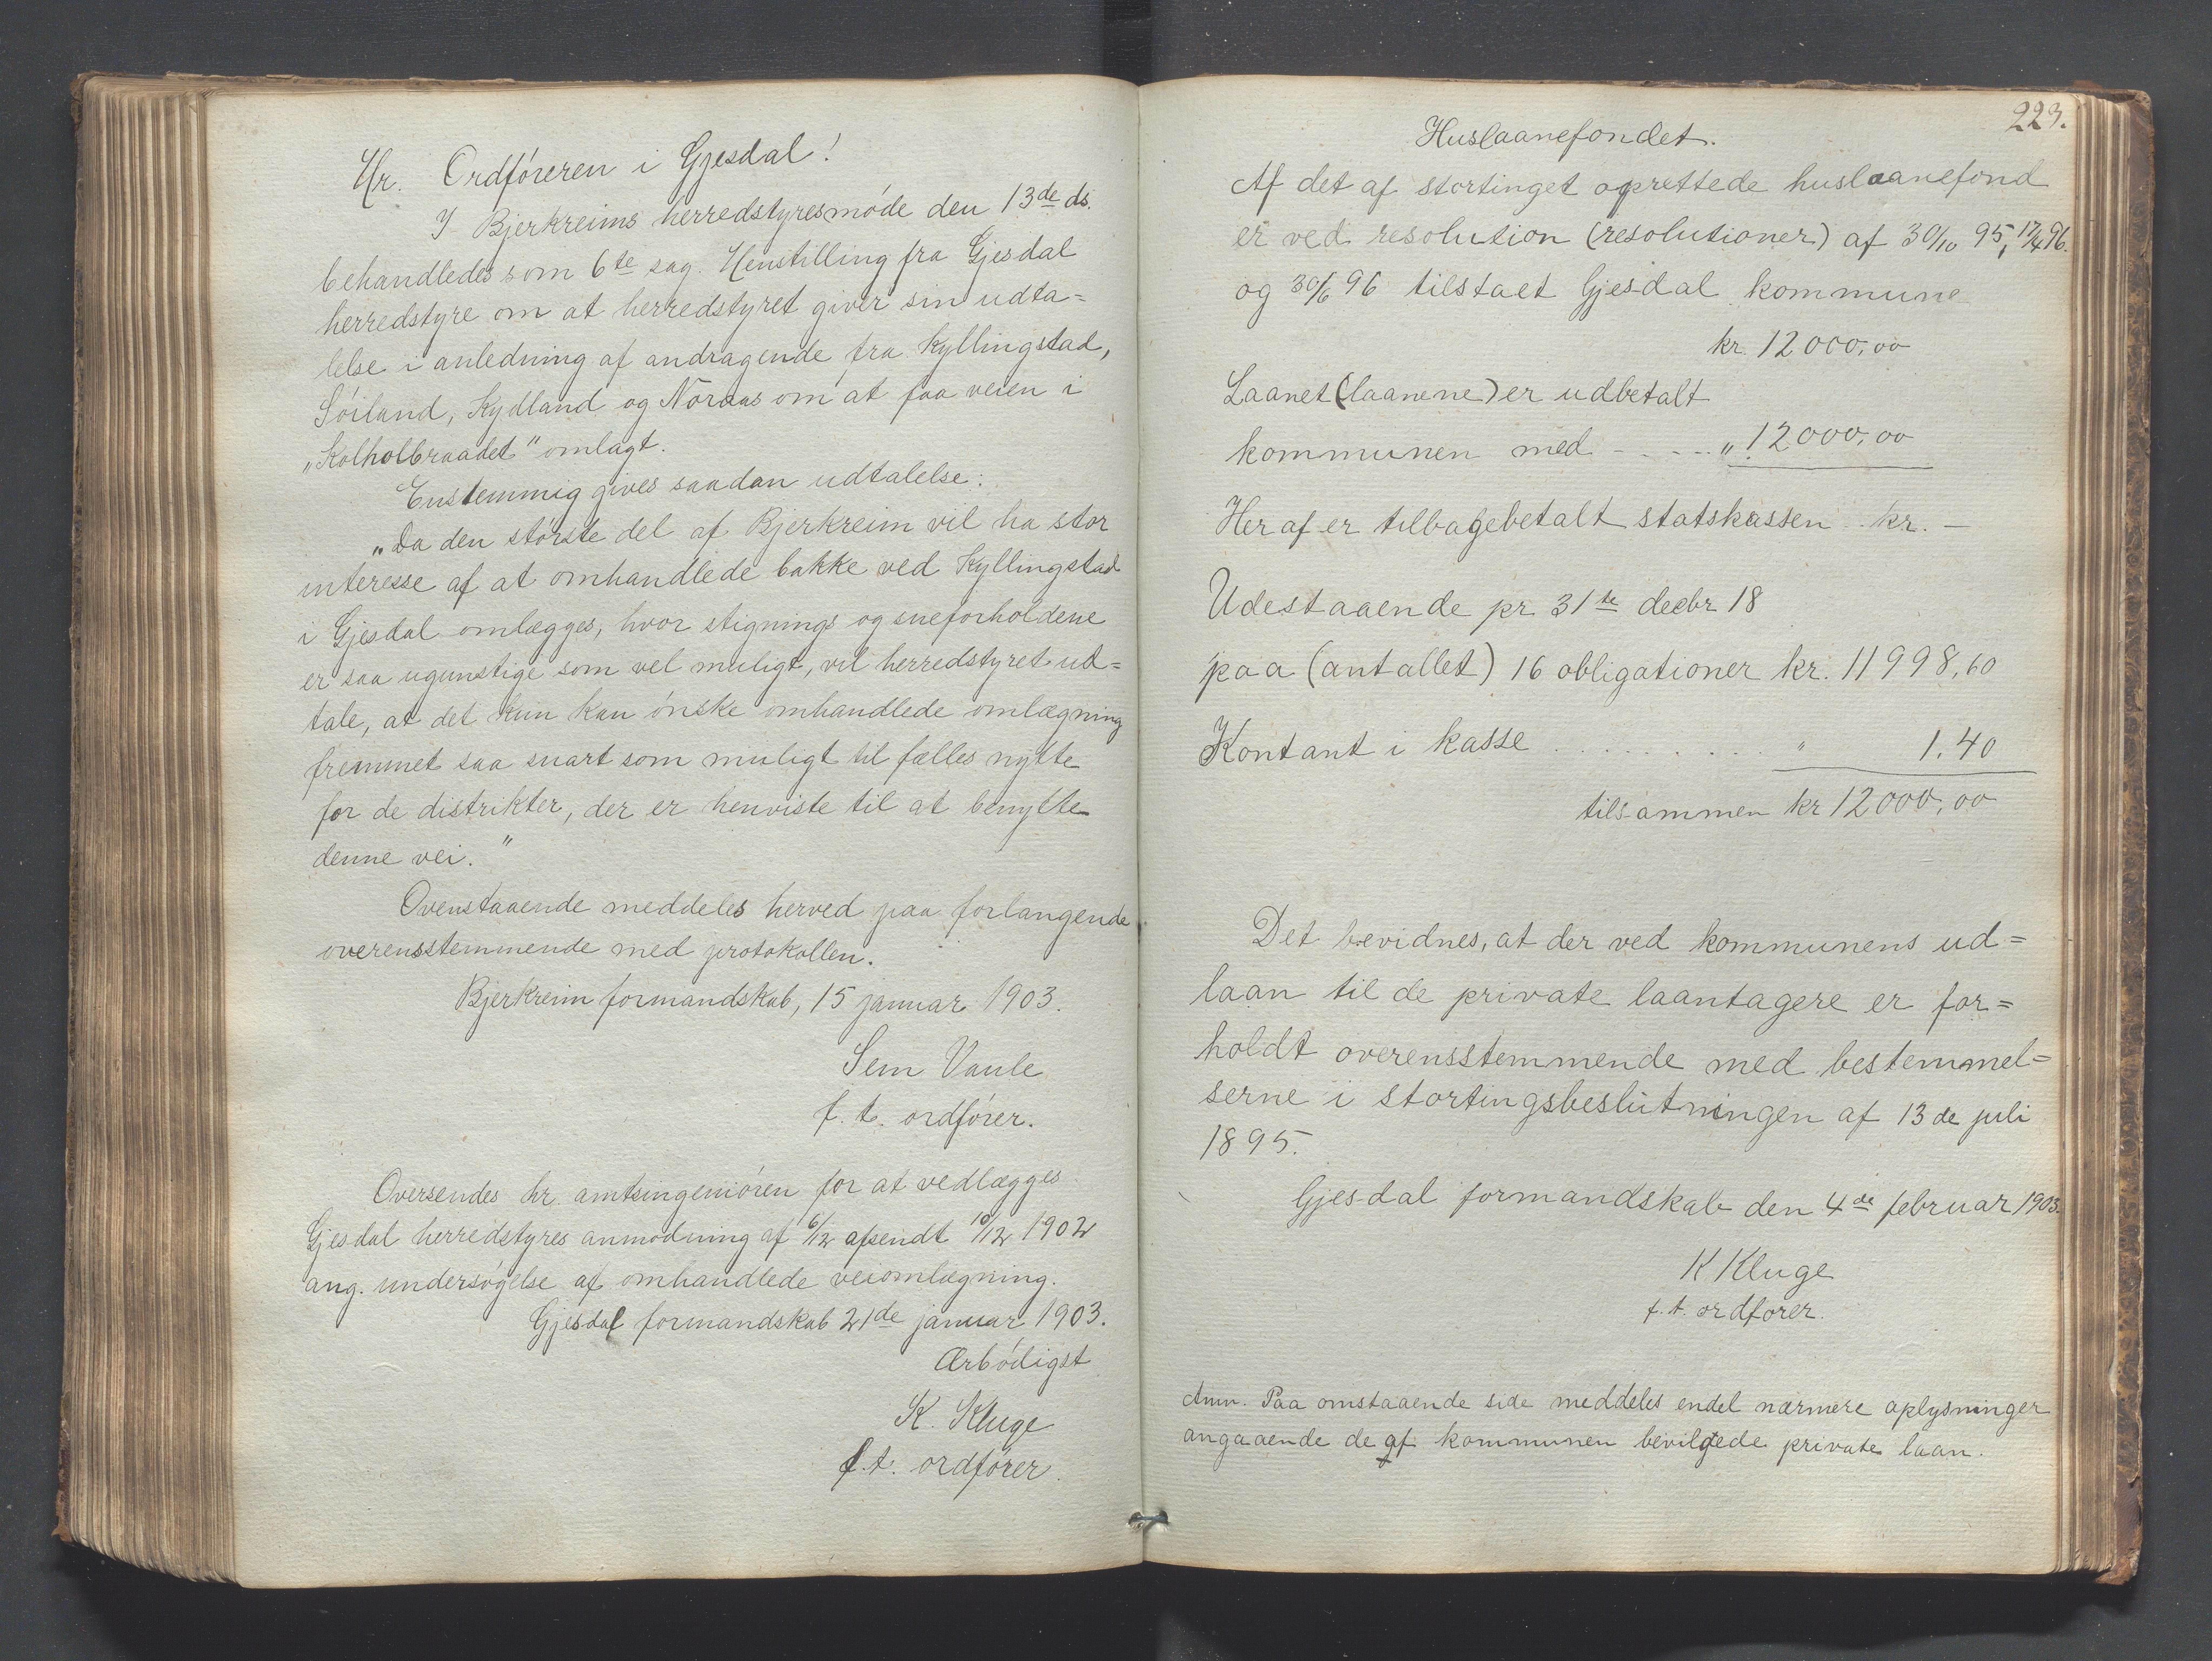 Hr. Ordføreren i Gjesdal!
I Bjerkreims herredstyresmøde den 13de ds.
behandledes som 6te sag. Henstilling fra Gjesdal
herredstyre om at herredstyret giver sin udta=
lelse i anledning af andragende fra Kyllingstad,
Søiland, Kydland og Noraas om at faa veien i
„Kolholbraadet" omlagt.
Enstemmig gives saadan udtalelse:
„Da den største del af Bjerkreim vil ha stor
interesse af at omhandlede bakke ved Kyllingstad
i Gjesdal omlægges, hvor stignings og sneforholdene
er saa ugunstige som vel muligt, vil herredstyret ud=
tale, at det kun kan ønske omhandlede omlægning
fremmet saa snart som muligt til fælles nytte
for de distrikter, der er henviste til at benytte
denne vei."
Ovenstaaende meddeles herved paa forlangende
overensstemmende med protokollen.
Bjerkreim formandskab, 15 januar 1903.
Sem Vaule
f. t. ordfører.
Oversendes hr. amtsingeniøren for at vedlægges
Gjesdal herredstyres anmodning af 6/12 afsendt 10/12 1902
ang. undersøgelse af omhandlede veiomlægning.
Gjesdal formandskab 21de januar 1903.
Ærbødigst
K. Kluge
f.t. ordfører.
223.
Huslaanefondet.
Af det af stortinget oprettede huslaanefond
er ved resolution (resolutioner) af 30/10 95, 17/4 96.
og 30/6 96 tilstaet Gjesdal kommune
kr. 12000,00
Laanet (laanene) er udbetalt
kommunen med - - - - „ 12000,00
Heraf er tilbagebetalt statskassen kr. –
Udestaaende pr 31te decbr 18
paa (antallet) 16 obligationer kr. 11998,60
Kontant i kasse . . . . . . . . . " 1.40
tilsammen kr 12000,00
Det bevidnes, at der ved kommunens ud=
laan til de private laantagere er for=
holdt overensstemmende med bestemmel=
serne i stortingsbeslutningen af 13de juli
1895.
Gjesdal formandskab den 4de februar 1903.
K Kluge
f. t. ordfører.
Anm. Paa omstaaende side meddeles endel nærmere oplysninger
angaaende de af kommunen bevilgede private laan.